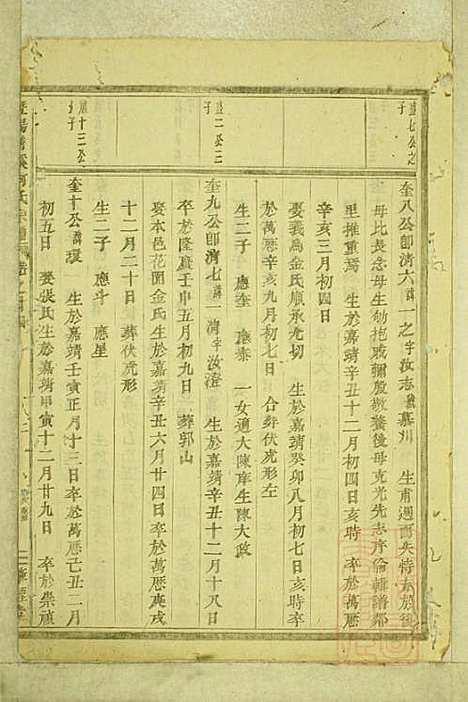 盛七公之子
奎八公卽清六 諱一之字汝志號慕川 生甫週而失恃奉於後
母比長念母生劬抱戚彌殷敬養後母克光先志序倫輯譜鄰
里推重焉 生於嘉靖辛丑十二月初四日亥時 卒於萬曆
辛亥三月初四日
娶義烏金氏順承允切 生於嘉靖癸卯八月初七日亥時卒
於萬曆辛亥九月初七日 合葬伏虎形左
生二子 應奎 應泰 一女適大陳庠生陳大政
盛二公三子
奎九公卽清七 諱一清字汝澄 生於嘉靖辛丑十二月十八日
卒於隆慶壬申五月初九日 葬郭山
娶本邑花園金氏生於嘉靖辛丑六月廿四日卒於萬曆庚戌
十二月二十日 葬伏虎形
生二子 應斗 應星
盛十三公長子
奎十公 諱環 生於嘉靖壬寅正月十三日卒於萬曆己丑二月
初五日 娶張氏生於嘉靖甲寅十二月廿九日 卒於崇禎